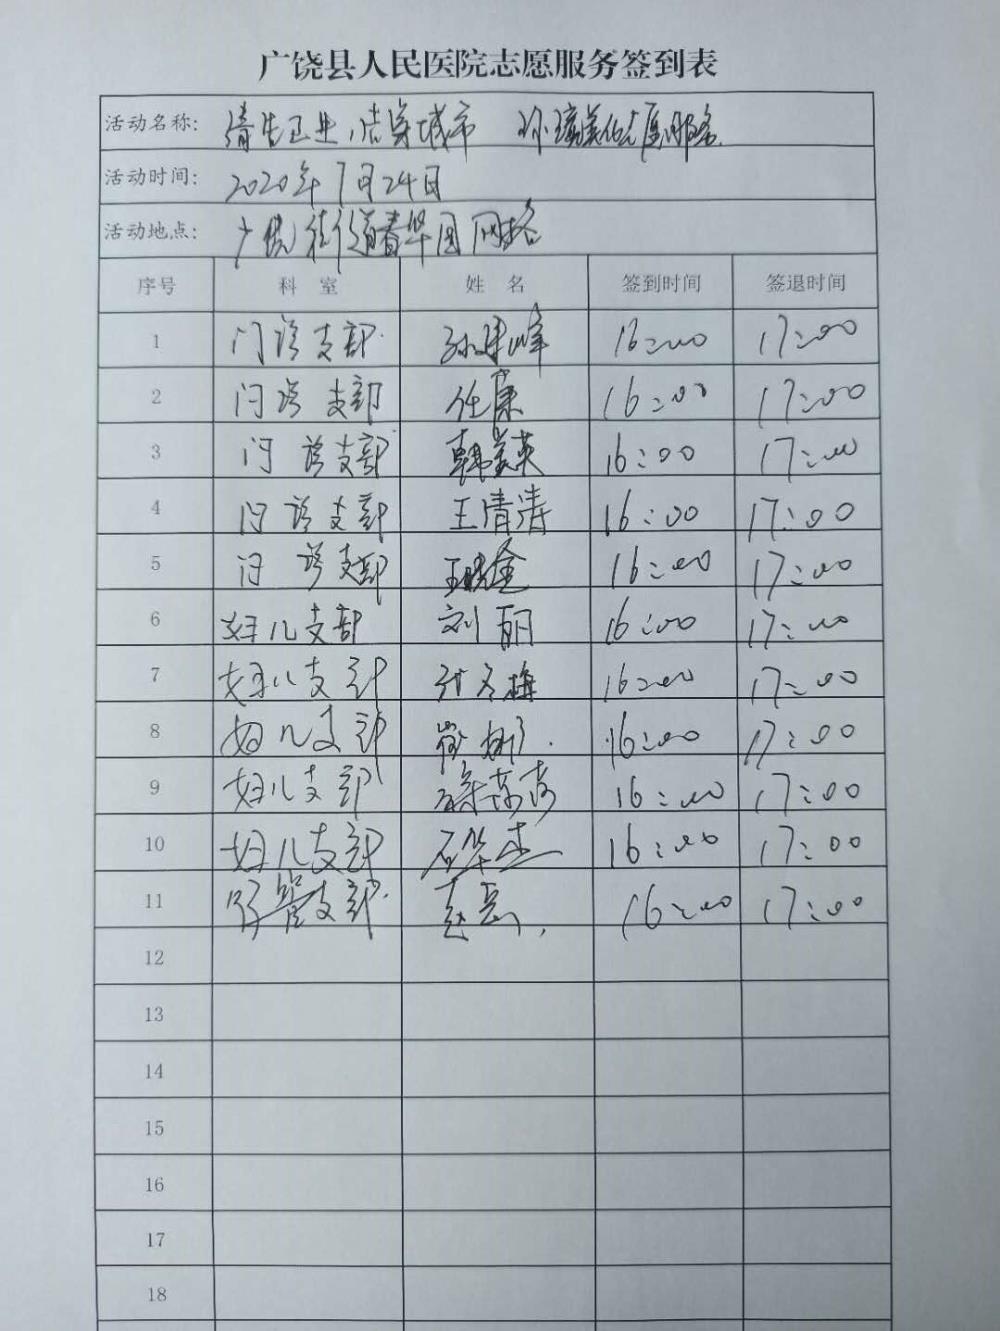 广饶县人民医院志愿服务签到表
活动名称: 清牛卫业 洁净城市 环境美化志愿服务
活动时间: 2020年7月24日
活动地点: 广饶街道春华园网格
序号 科室 姓名 签到时间 签退时间
1 门诊支部 孙建峰 16:00 17:00
2 门诊支部 任康 16:00 17:00
3 门诊支部 韩美英 16:00 17:00
4 门诊支部 王清涛 16:00 17:00
5 门诊支部 16:00 17:00
6 妇儿支部 刘丽 16:00 17:00
7 妇儿支部 张冬梅 16:00 17:00
8 妇儿支部 崔彬 16:00 17:00
9 妇儿支部 薛荷荷 16:00 17:00
10 妇儿支部 石华杰 16:00 17:00
11 支部 赵磊 16:00 17:00
12
13
14
15
16
17
18